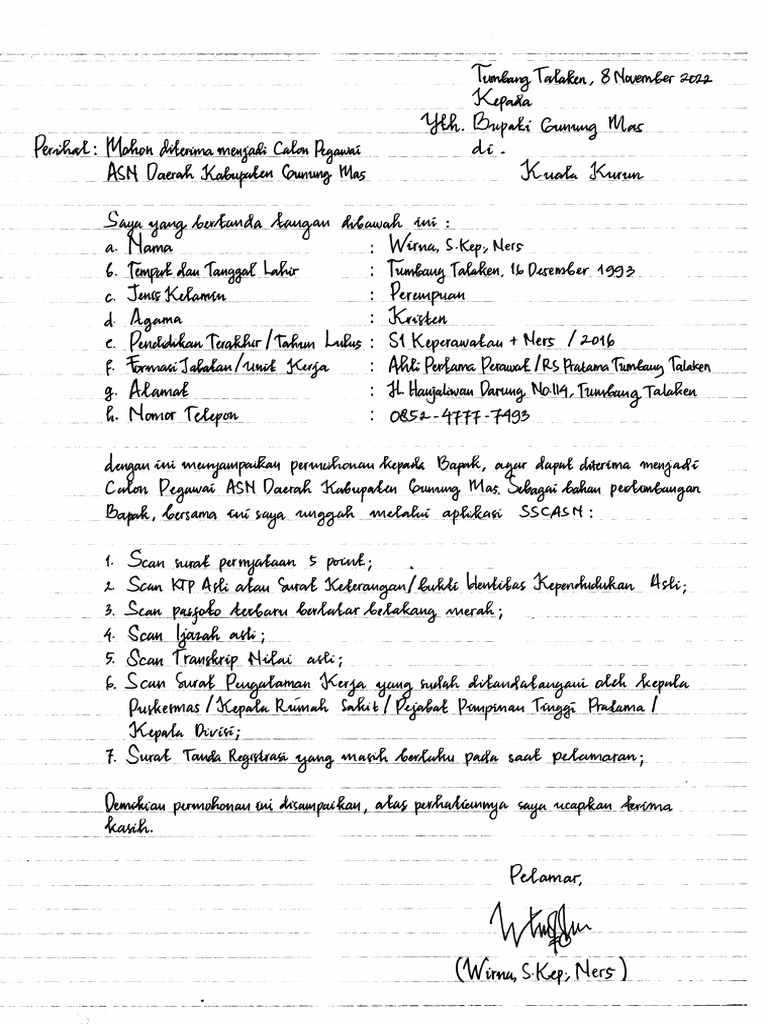 Tumbang Talaken, 8 November 2022
Kepada
Yth. Bupati Gunung Mas
Perihal : Mohon diterima menjadi Calon Pegawai di -
ASN Daerah Kabupaten Gunung Mas Kuala Kurun
Saya yang bertanda tangan dibawah ini :
a. Nama : Wirna, S.Kep., Ners
b. Tempat dan Tanggal Lahir : Tumbang Talaken, 16 Desember 1993
c. Jenis Kelamin : Perempuan
d. Agama : Kristen
e. Pendidikan Terakhir/Tahun Lulus : S1 Keperawatan + Ners / 2016
f. Formasi Jabatan/Unit Kerja : Ahli Pertama Perawat/RS Pratama Tumbang Talaken
g. Alamat : Jl. Haujaliwan Darung No.114, Tumbang Talaken
h. Nomor Telepon : 0852-4777-7493
dengan ini menyampaikan permohonan kepada Bapak, agar dapat diterima menjadi
Calon Pegawai ASN Daerah Kabupaten Gunung Mas. Sebagai bahan pertimbangan
Bapak, bersama ini saya unggah melalui aplikasi SSCASN :
1. Scan surat pernyataan 5 point;
2. Scan KTP Asli atau Surat Keterangan/bukti Identitas Kependudukan Asli;
3. Scan pasfoto terbaru berlatar belakang merah;
4. Scan Ijazah asli;
5. Scan Transkrip Nilai asli;
6. Scan Surat Pengalaman Kerja yang sudah ditandatangani oleh kepala
Puskesmas/Kepala Rumah Sakit/Pejabat Pimpinan Tinggi Pratama/
Kepala Divisi;
7. Surat Tanda Registrasi yang masih berlaku pada saat pelamaran;
Demikian permohonan ini disampaikan, atas perhatiannya saya ucapkan terima
kasih.
Pelamar,
(Wirna, S.Kep., Ners)